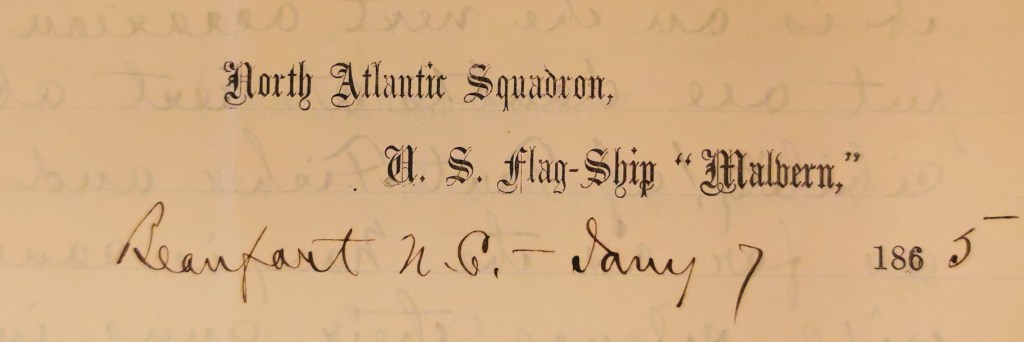 North Atlantic Squadron,
U. S. Flag-Ship "Malvern,"
Beaufort N.C. – Jany 7 1865